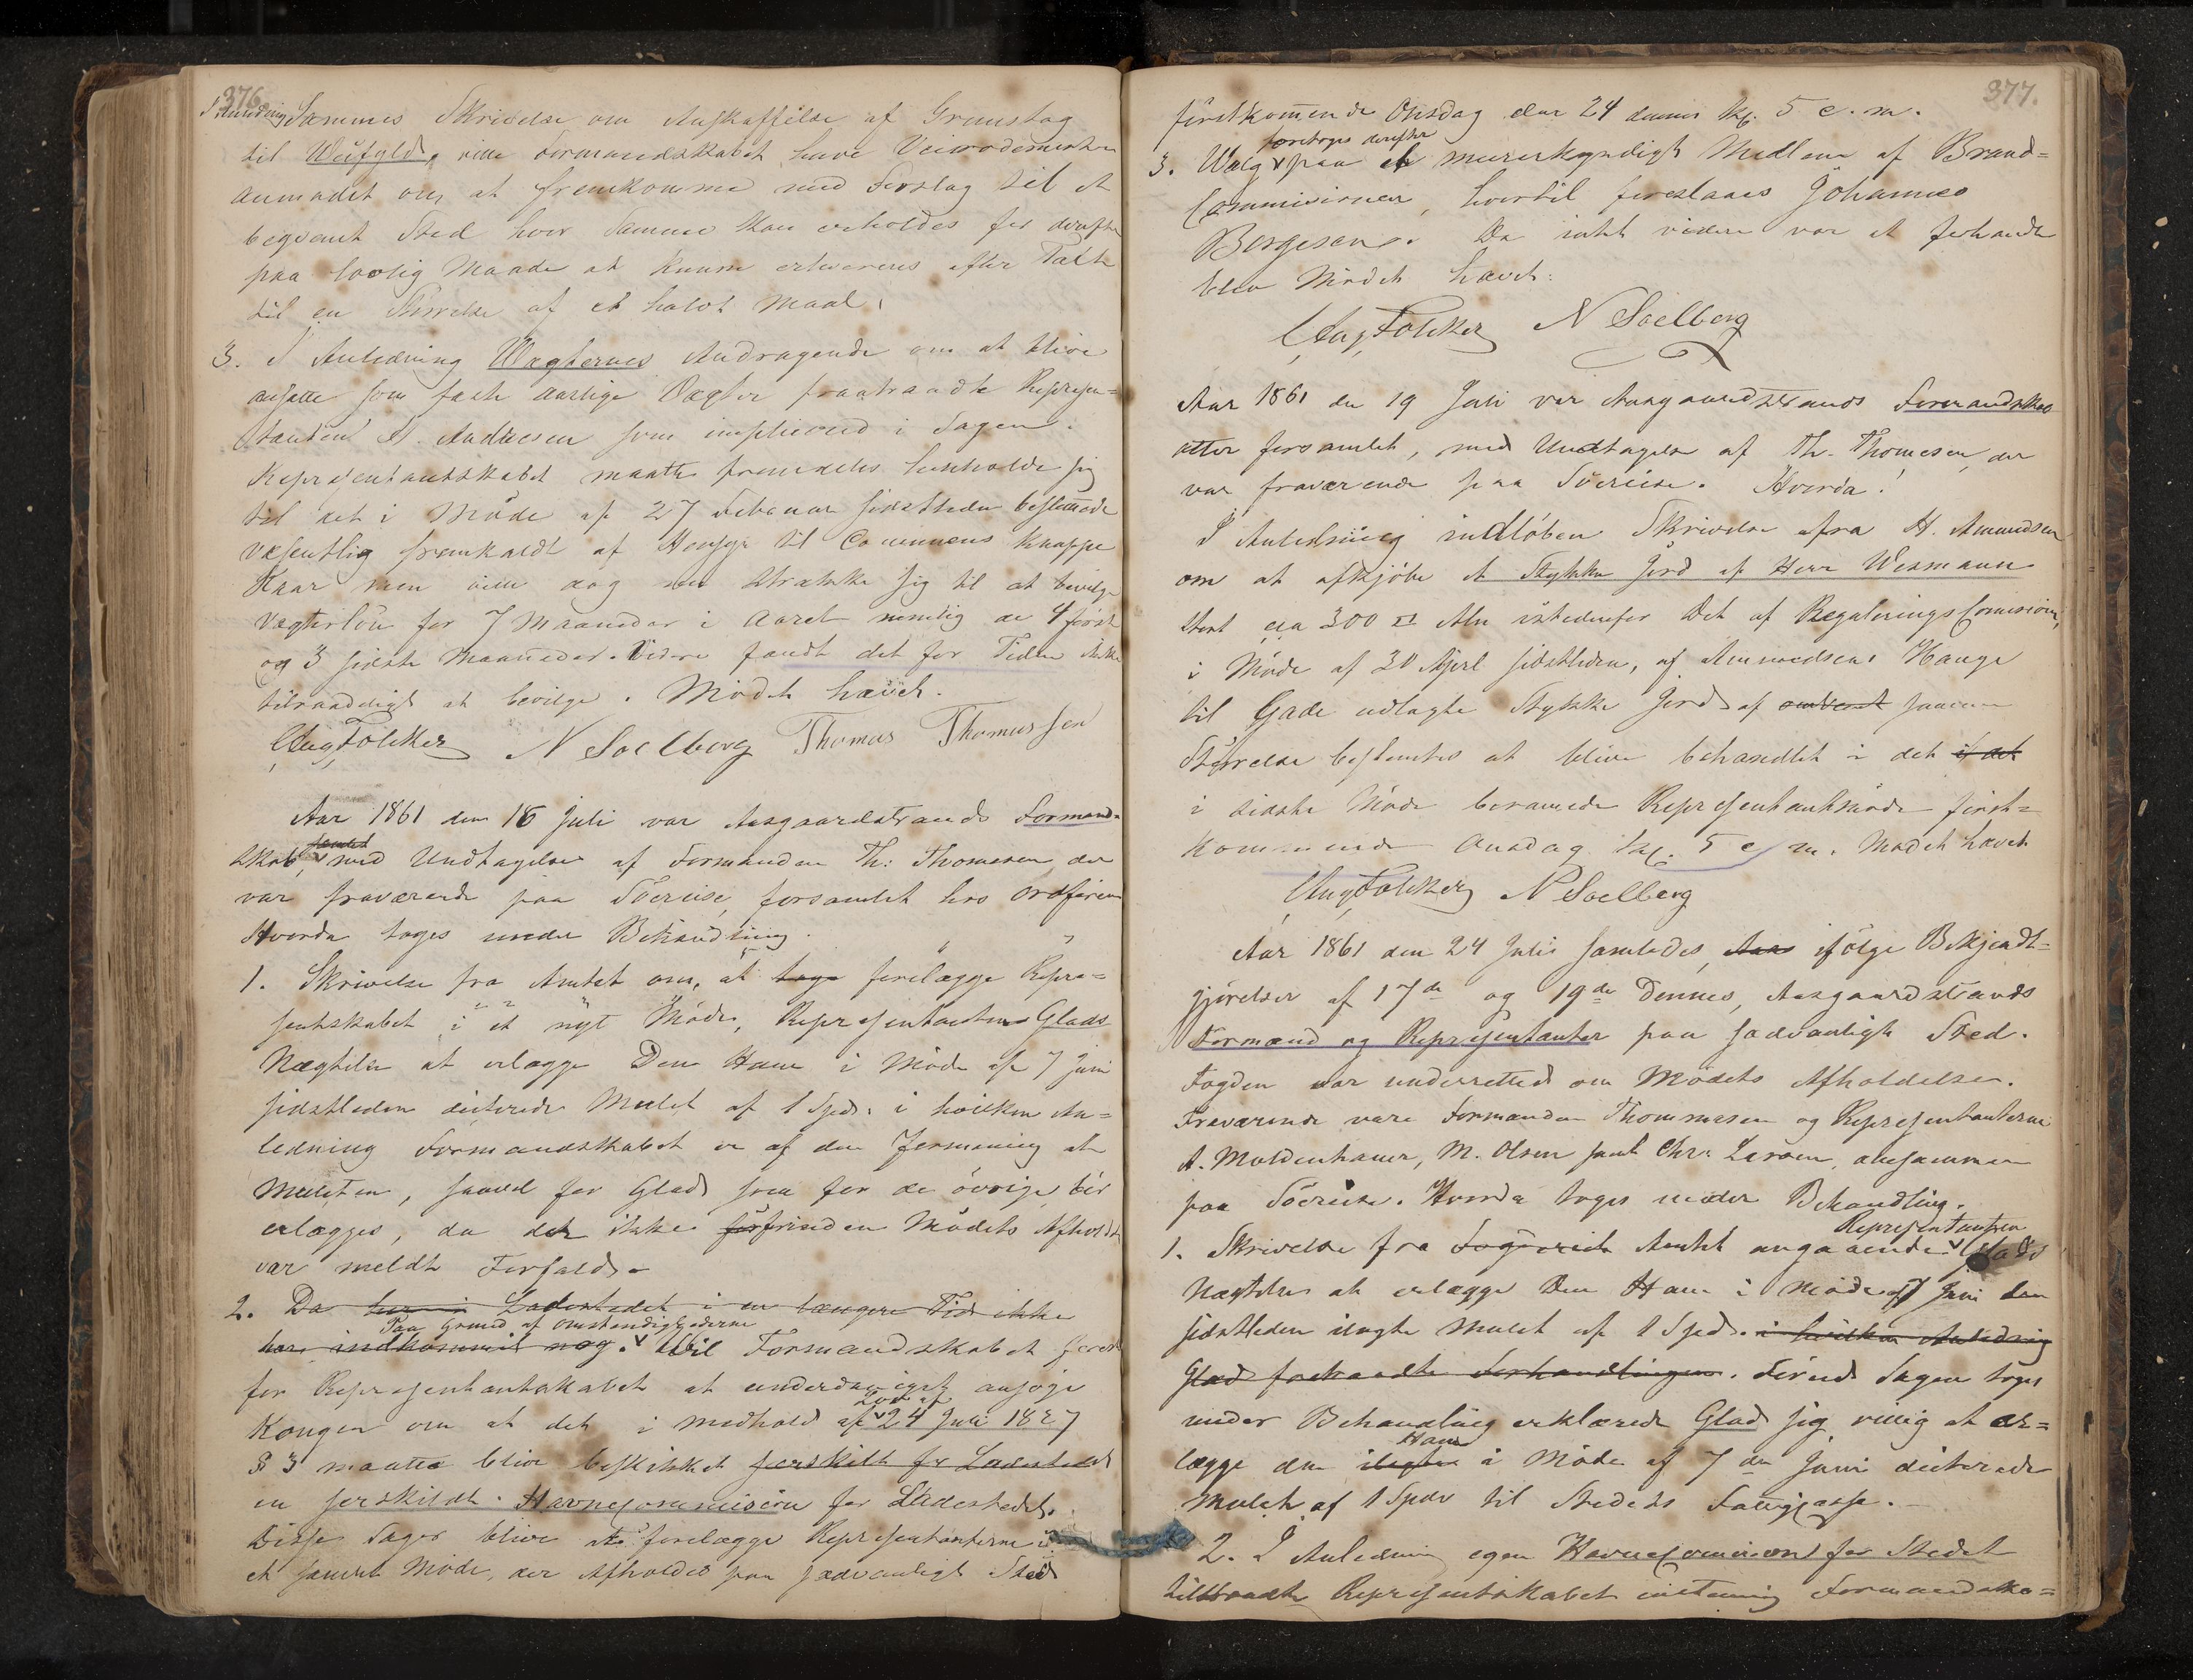 376.
I Anledning Sammes Skrivelse om Anskaffelse af Grunstag
til Veifyld, vilde Formandskabet have Veirodemester
anmodet om, at fremkomme med Forslag til et
beqvemt Sted hvor Samme kan erholdes for derefter
paa lovlig Maade at kunne erhverves efter Taxt
til en Størrelse af et halvt Maal.
3. I Anledning Vægternes Andragende om at blive
ansatte som faste aarlige Vægter fratraadte Represen=
tanten A. Andresen som implicered i Sagen.
Representantskabet maatte fremdeles henholde sig
til det i Møde af 27 Februar sidstleden bestemmede
væsentlig fremkaldt af Hensyn til Communens knappe
Kaar men vilde dog nu strække sig til at bevilge
Vægterløn for 7 Maaneder i Aaret nemlig de 4 første
og 3 sidste Maaneder. Videre fandt det for Tiden ikke
tilraadeligt at bevilge. Mødet hævet.
Aug Foleker N Soelberg Thomas Thomassen
Aar 1861 den 16 Juli var Aasgaardstrands Formand=
skab, med Undtagelse af Formanden Th: Thomesen, der
var fraværende paa Søereise, forsamlet hos Ordføreren
Hvorda toges under Behandling.
1. Skrivelse fra Amtet om, at tage forelægge Repre=
sentskabet i et nyt Møde, Representanten Glads
Nægtelse at erlægge Den Ham i Møde af 7 Juni
sidstleden dicterede Mulct af 1 Spd. i hvilken An=
ledning Formandskabet er af den Formening at
Mulcten, saavel for Glad som for de øvrige bør
erlægges, da der ikke før forinden Mødets Afholdelse
var meldt Forfald.
2. Da Ladestedet i en længere Tid ikke
Paa Grund af Omstændighederne
har indkommet nog. Vil Formandskabet foreslaa
for Representantskabet at underdanigst ansøge
Lov af
Kongen om at det i medhold af 24 Juli 1827
§ 3 maatte blive beskikket særskilt for Ladestedet
en særskildt. Havnecommission for Ladestedet.
Disse Sager blive at forelægge Representanterne i
et samlet Møde, der Afholdes paa sædvanligt Sted
377.
førstkommende Onsdag den 24 dennes kl. 5 e. m.
foretoges derefter
3. Valg paa et murerkyndigt Medlem af Brand=
Commisionen, hvortil foreslaaes Johannes
Børgesen. Da intet videre var at forhandle
blev Mødet hævet.
Aug Foleker N Soelberg
Aar 1861 den 19 Juli var Aasgaardstrands Formandskab
atter forsamlet, med Undtagelse af Th. Thomesen, der
var fraværende paa Søereise. Hvorda!
I Anledning indløben Skrivelse fra H. Amundsen
om at afkjøbe et Stykke Jord af Herr Wesmann
stort cia 300 □ Aln istedenfor Det af ReguleringsComisionen,
i Møde af 30 April sidstleden, af Amundsens Hauge
til Gade udlagte Stykke Jord af omtrent samme
Størrelse bestemtes at blive behandlet i det i det
i sidste Møde beramede Representantmøde først=
kommende Onsdag kl. 5 e m. Mødet hævet
Aug Foleker N Soelberg
Aar 1861 den 24 Juli samledes, ifølge Bekjendt=
gjørelser af 17de og 19de Dennes, Aasgaardstrands
Formænd og Representanter paa sædvanligt Sted.
Fogden var underrettet om Mødets Afholdelse.
Fraværende vare Formanden Thommesen og Representanterne
A. Moldenhauer, M. Olsen samt Chr. Larsen, allesammen
paa Søereise. Hvorda toges under Behandling.
Representanten
1. Skrivelse fra Amtet angaaende Glads
Nægtelse at erlægge Den Ham i Møde af 7 Juni den
sidstleden ilagte Mulct af 1 Spd. i hvilken Anledning
Glad fratraadte Forhandlingen. Førend Sagen toges
under Behandling erklærede Glad sig villig at er=
Ham
lægge den ilagte i Møde af 7de Juni dicterede
Mulct af 1 Spdr til Stedets Fattigcasse.
2. I Anledning egen Havnecommision for Stedet
tiltraadte Representskabet enstemig Formandska=